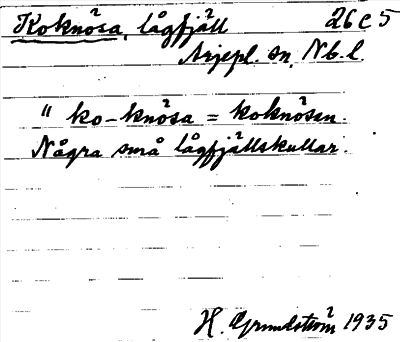 Koknåsa, lågfjäll 26 C 5
Arjepl. sn, Nb. l.
" ko-knåsa = koknåsan.
Några små lågfjällskullar.
H. Grundström 1935